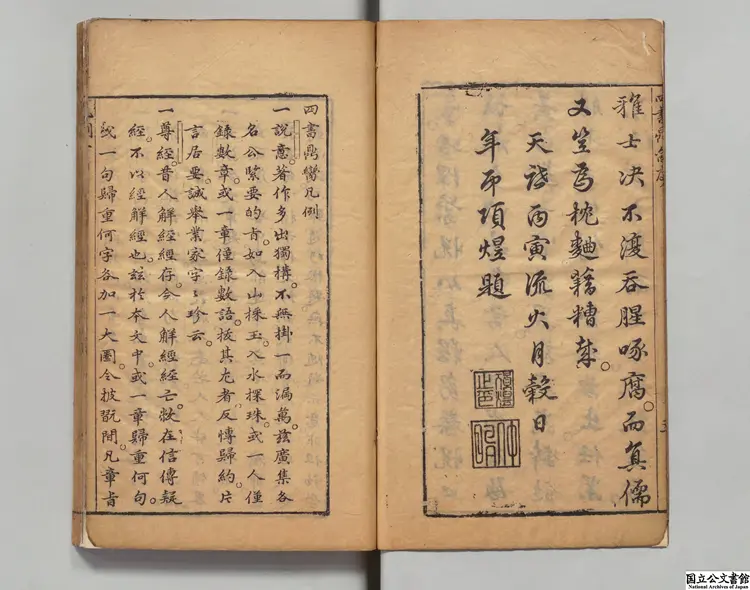 雅士決不渡吞腥啄腐而真儒
又豈為枕麯藉糟哉
天啟丙寅流火月穀日
年弟項煜題
項煜之印
四書鼎臠凡例
一說意著作多出獨搆不無掛一而漏萬玆廣集各
名公緊要的肯如入山採玉入水探珠或一人僅
錄數章或一章僅錄數語拔其尤者反愽歸約片
言居要誠舉業家字〻珍云
一尊經昔人解經經存今人解經經亡敝在信傳疑
經不以經解經也玆於本文中或一章歸重何句
或一句歸重何字各加一大圈令披翫間凡章旨
国立公文書館
National Archives of Japan